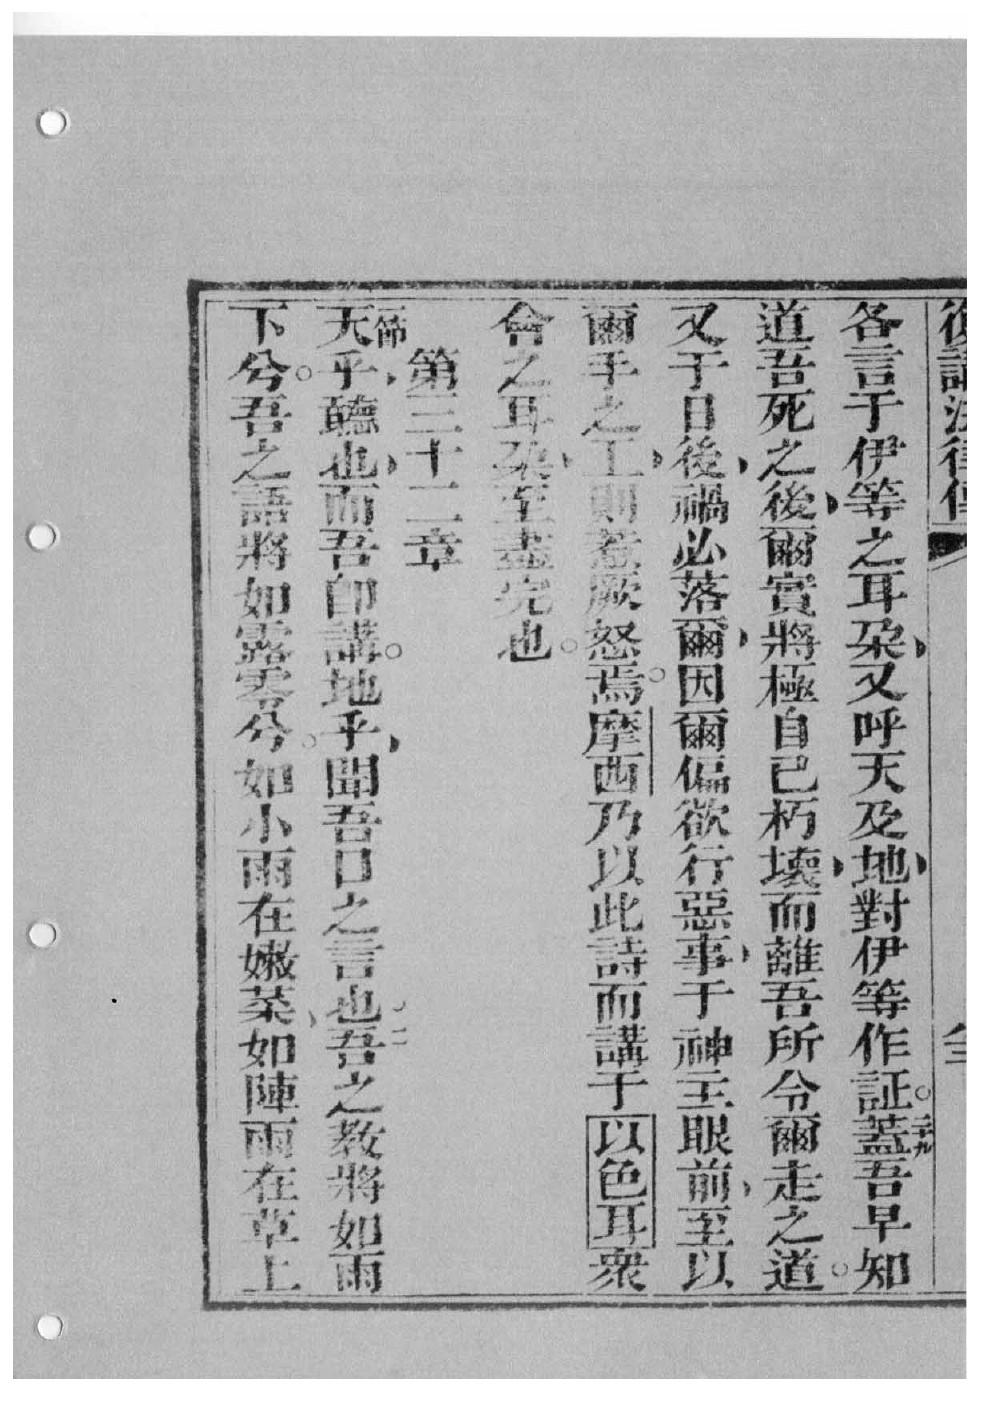 復講法律傳
各言于伊等之耳朶又呼天及地對伊等作証。二十九蓋吾早知
道吾死之後爾實將極自己朽壞而離吾所令爾走之道。
又于日後禍必落爾因爾偏欲行惡事于神主眼前至以
爾手之工則惹厥怒焉。摩西乃以此詩而講于以色耳衆
會之耳朶至盡完也。
第三十二章
一節天乎聽也而吾即講。地乎聞吾口之言也。二吾之教將如雨
下兮。吾之語將如露零兮。如小雨在嫩菜如陣雨在草上